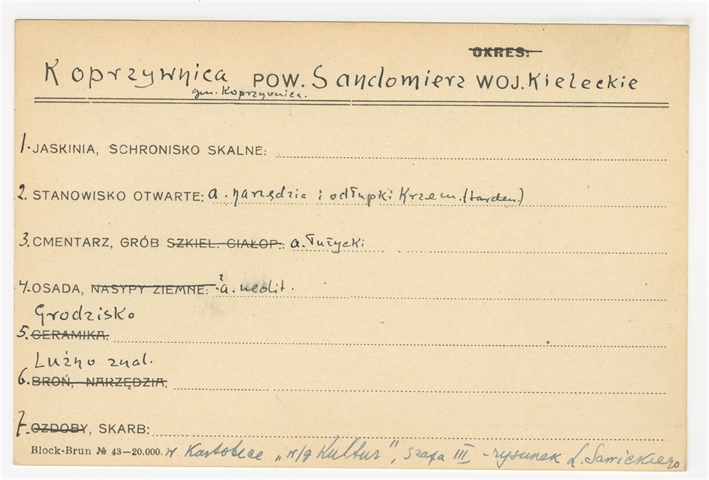 OKRES:
Koprzywnica POW. Sandomierz WOJ. Kieleckie
gm. Koprzywnica.
1. JASKINIA, SCHRONISKO SKALNE:
2. STANOWISKO OTWARTE: a. narzędzie i odłupki Krzem. (tarden.)
3. CMENTARZ, GRÓB SZKIEL. CIAŁOP.: a. łużycki
4. OSADA, NASYPY ZIEMNE: ? a. neolit.
Grodzisko
5. CERAMIKA:
Luźno znal.
6. BROŃ, NARZĘDZIA:
7. OZDOBY, SKARB:
Block-Brun № 43—20.000. w Kartotece „w/g Kultur", szafa III - rysunek L. Sawickiego